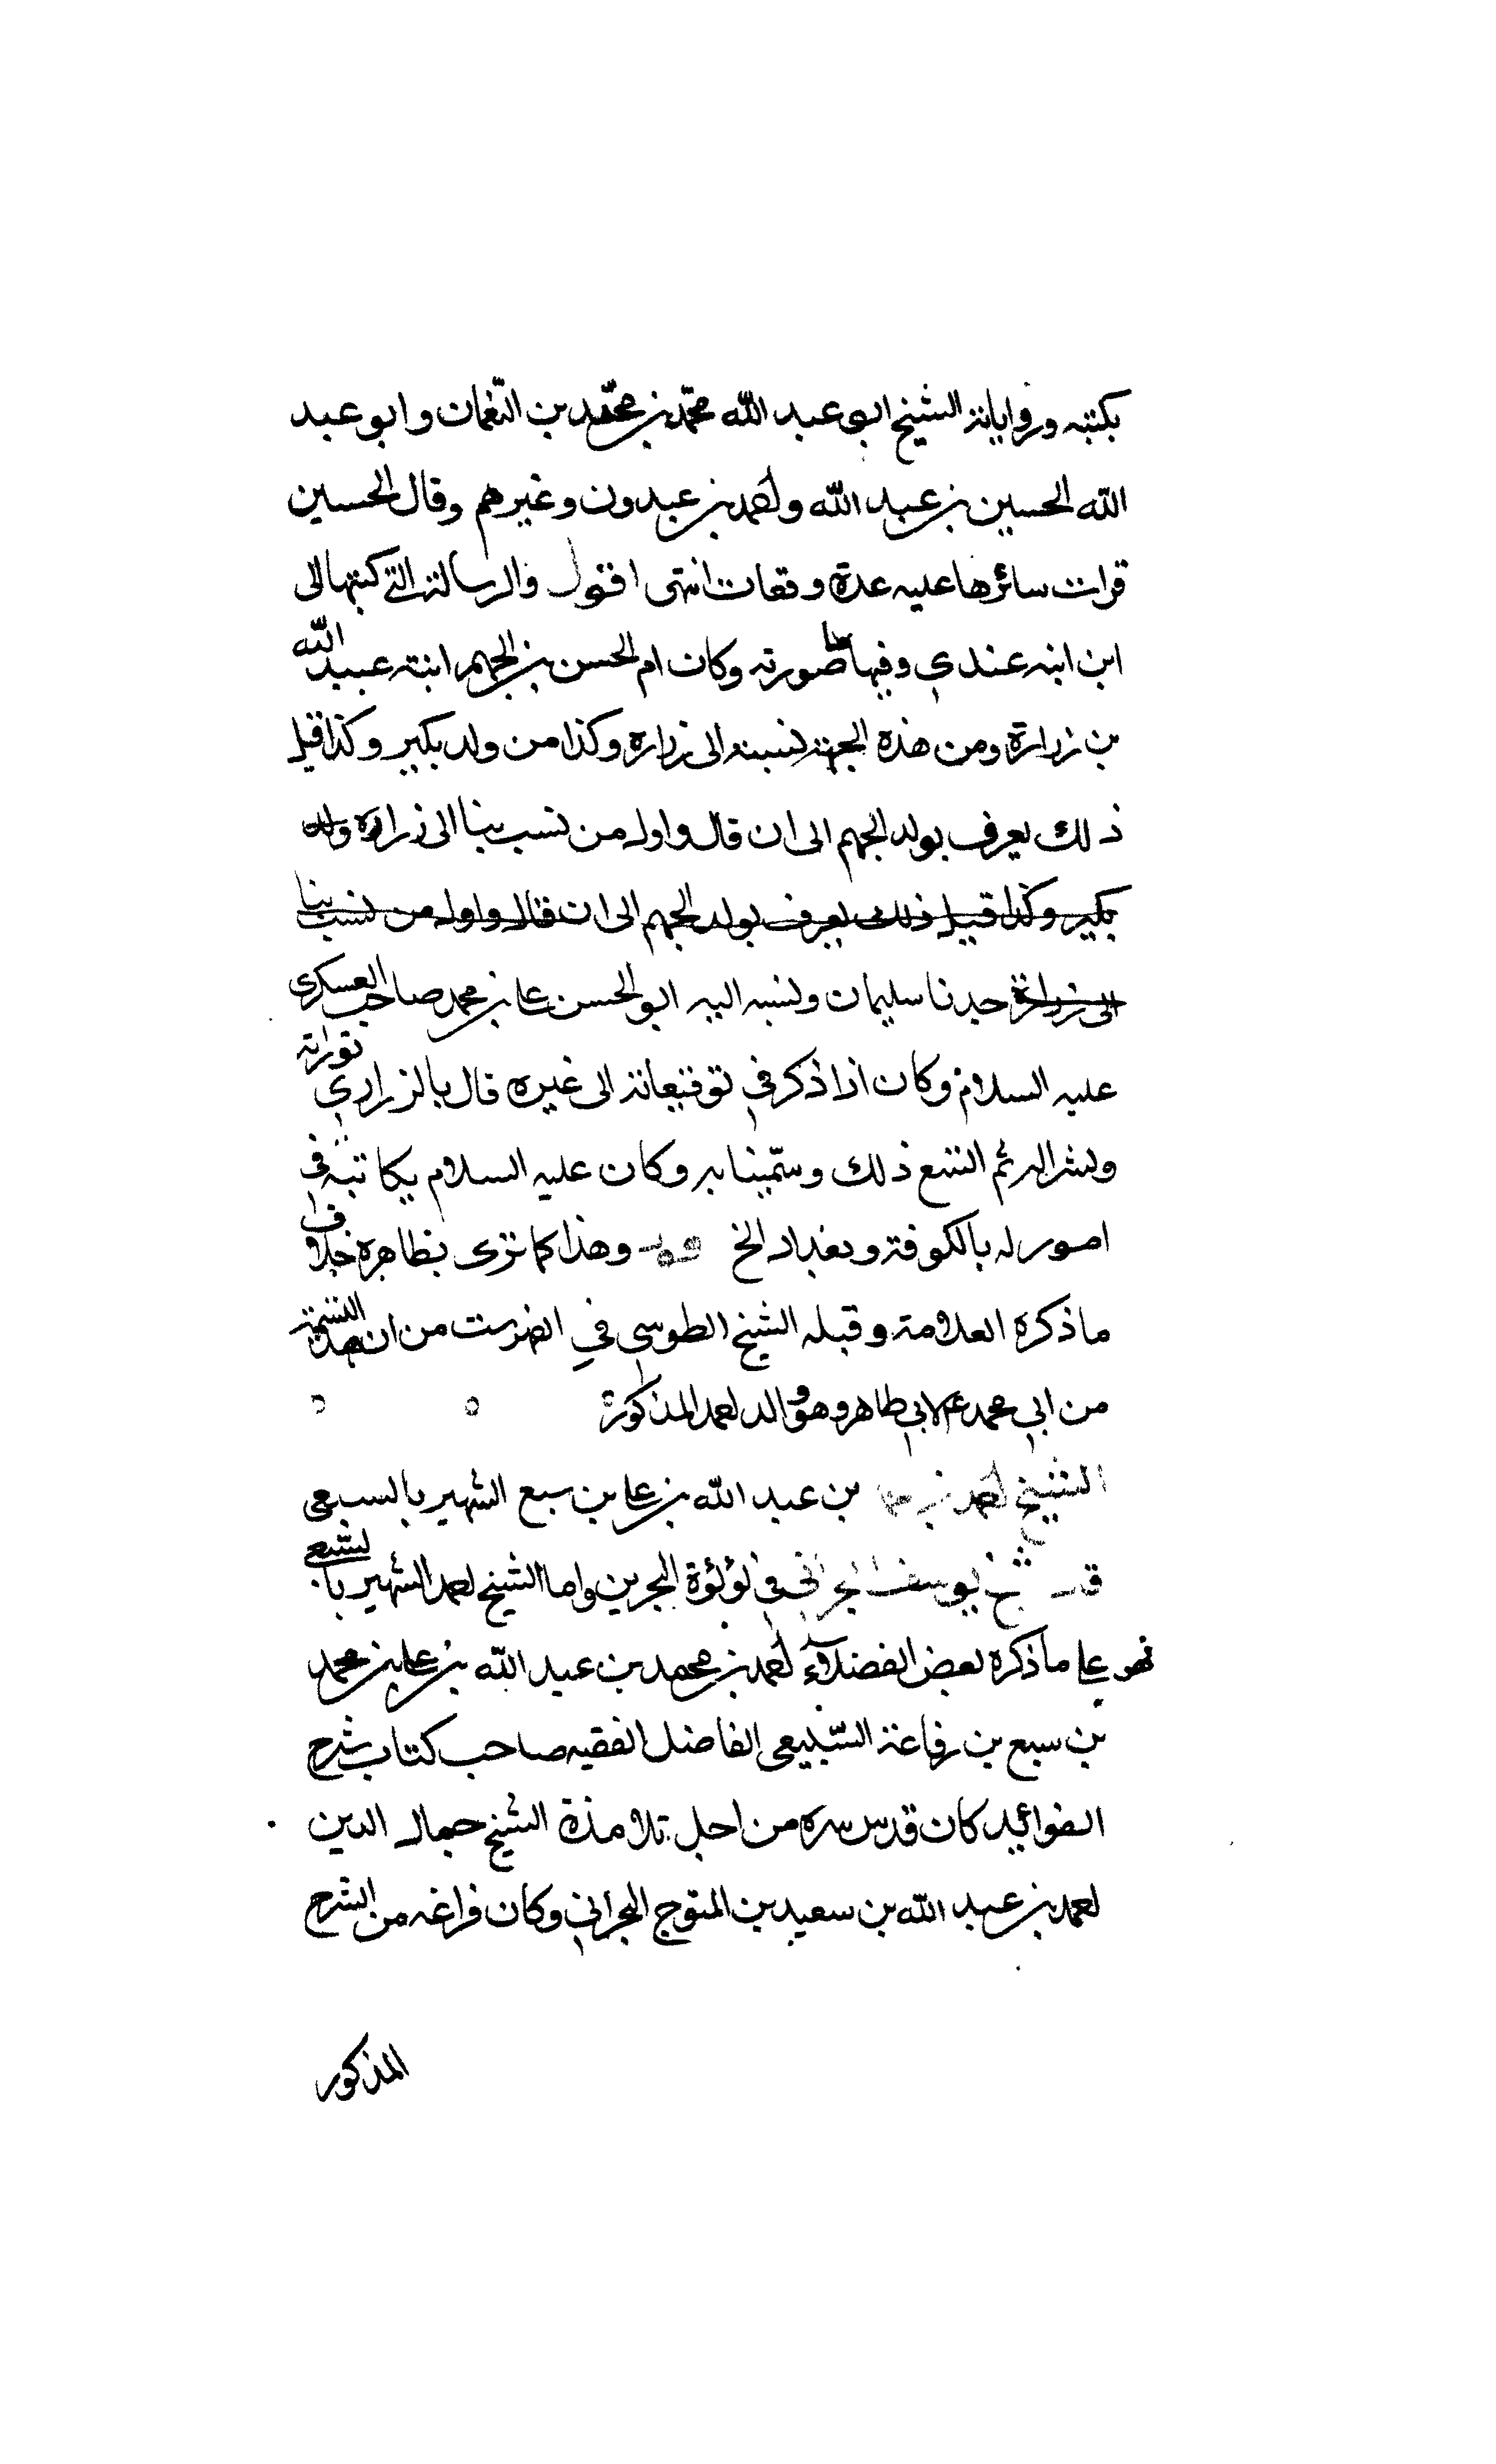 بكتبه ورواياته الشيخ ابو عبد الله محمد بن محمد بن النعمان وابو عبد
الله الحسين بن عبد الله واحمد بن عبدون وغيرهم وقال الحسين
قرات سائرها عليه عدة دفعات انتهى اقول والرسالة التي كتبها الى
ابن ابنه عندي وفيها ما صورته وكان ام الحسن بن الجهم ابنة عبيد الله
بن زرارة ومن هذه الجهة نسبنا الى زرارة وكذا من ولد بكير وكذا قبل
ذلك يعرف بولد الجهم الى ان قال واول من نسب بنا الى زرارة ولد
بكير وكذا قبل ذلك يعرف بولد الجهم الى ان قال واول من نسب بنا
الى زرارة جدنا سليمان ونسبه اليه ابو الحسن على بن محمد صاحب العسكرى
عليه السلام وكان اذا ذكر في توقيعاته الى غيره قال بالزراري تورية
وسترا له ثم اتسع ذلك وسمينا به وكان عليه السلام يكاتبه فى
امور له بالكوفة وبغداد الخ وهذا كما ترى بظاهره خلاف
ما ذكره العلامة وقبله الشيخ الطوسي في الفهرست من ان هذه التسمية
من ابي محمد ع لابي طاهر وهو والد احمد المذكورة
الشيخ احمد بن بن عبد الله بن على بن سبع الشهير بالسبعي
يوسف البحراني في لؤلؤة البحرين واما الشيخ احمد الشهير بالسبعي
فهو على ما ذكره بعض الفضلاء احمد بن محمد بن عبد الله بن على بن محمد
بن سبع بن رفاعة السبيعي الفاضل الفقيه صاحب كتاب شرح
الفوائد كان قدس سره من اجل تلامذة الشيخ جمال الدين
احمد بن عبد الله بن سعيد بن المتوج البحراني وكان فراغه من الشرح
المذكور